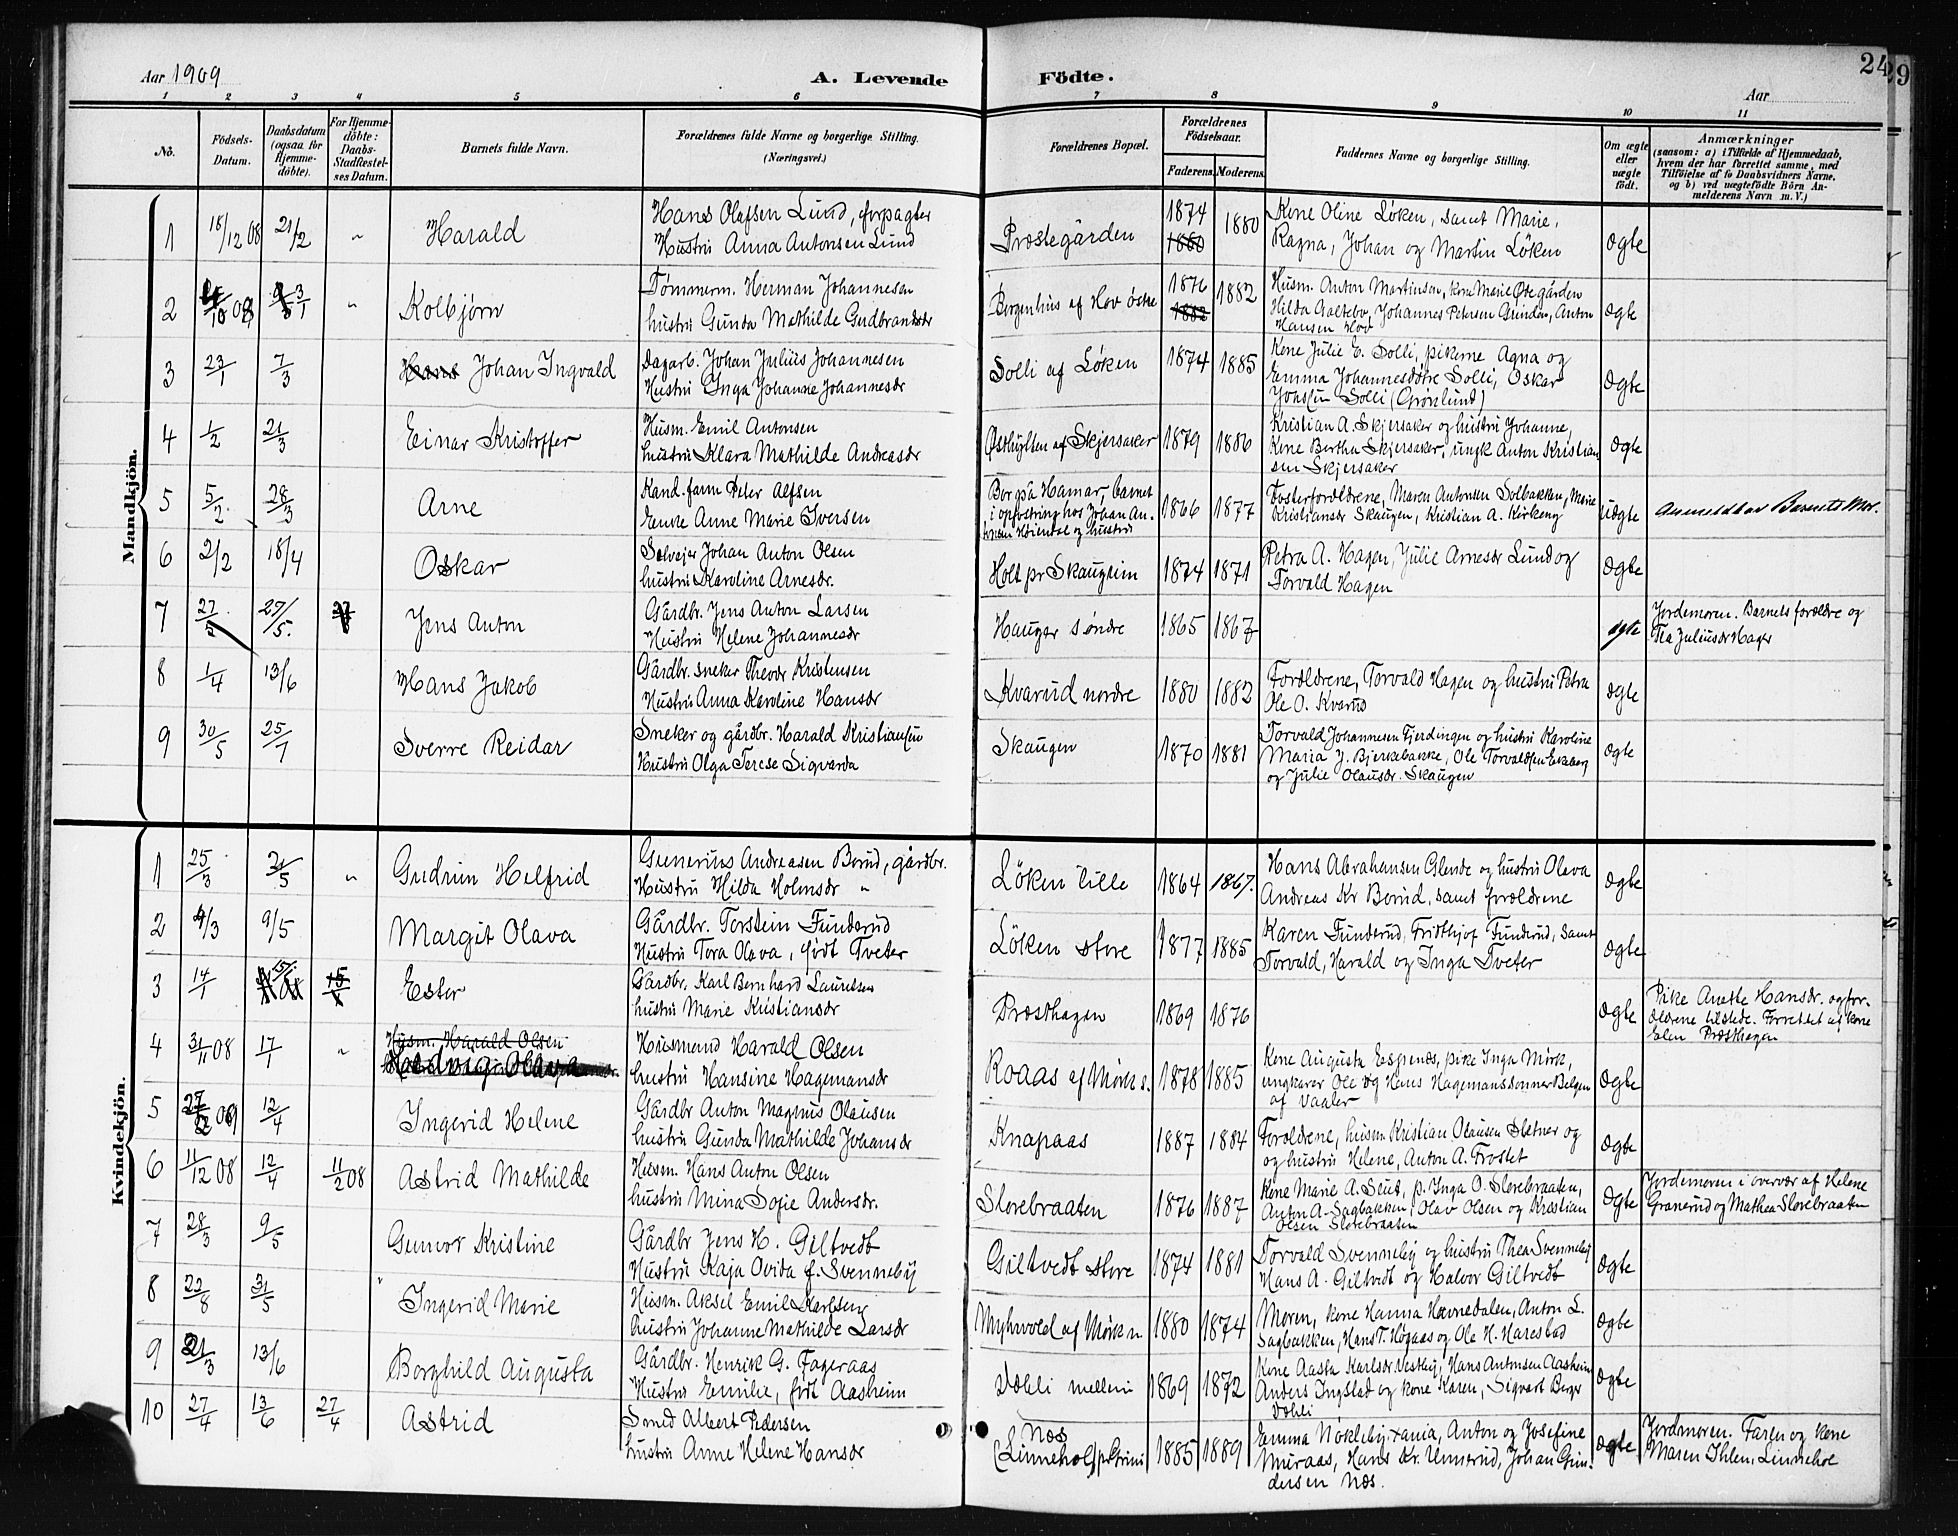 Aar 1909
A. Levende Födte.
24
29
Aar
1 2 3 4 5 6 7 8 9 10 11
No.
Födsels-
Datum.
Daabsdatum
(ogsaa for
Hjemme-
döbte).
For Hjemme-
döbte:
Daabs-
Stadfæstel-
ses Datum.
Barnets fulde Navn.
Forældrenes fulde Navne og borgerlige Stilling.
(Næringsvei.)
Forældrenes Bopæl.
Forældrenes
Födselsaar.
Faderens. Moderens.
Faddernes Navne og borgerlige Stilling.
Om ægte
eller
uægte
födt.
Anmærkninger
(saasom: a) i Tilfælde af Hjemmedaab,
hvem der har forrettet samme, med
Tilföielse af to Daabsvidners Navne,
og b) ved uægtefödte Börn An-
melderens Navn m. V.)
Mandkjön.
1 18/12 08 21/2 " Harald Hans Olafsen Lund, forpagter
Hustru Anna Antonsen Lund
Præstegården 1874 1880 1880 Kone Oline Løken, samt Marie,
Ragna, Johan og Martin Løken ægte
2 /10 08 3/1 " Kolbjørn Tømmerm. Herman Johannesen
hustru Gunda Mathilde Gudbrandsdr
Borgenhus af Hov østre 1876 1882 1882 Husm. Anton Martinsen, kone Marie Østegården
Hilda Galtebo, Johannes Petersen Grinden, Anton
Hansen Hov ægte
3 23/1 7/3 Hans Johan Ingvald Dagarb. Johan Julius Johannesen
Hustru Inga Johanne Johannesdr
Solli af Løken 1874 1885 Kone Julie E. Solli, pikerne Agna og
Emma Johannesdøtre Solli, Oskar
Jonsen Solli (Grønlund) ægte
4 1/2 21/3 Einar Kristoffer Husm. Emil Antonsen
hustru Klara Mathilde Andreasdr
Østbylten af Skjersaker 1879 1886 Kristian A. Skjersaker og hustru Johanne,
Kone Bertha Skjersaker, ungk Anton Kristian
sen Skjersaker ægte
5 5/2 28/3 Arne Kand. farm Peter Alfsen
Enke Anne Marie Iversen
Bor på Hamar, barnet
i opfostring hos Johan An-
tonsen Høiendal og hustru
1866 1877 Fosterforældrene, Maren Antonsen Solbakken, Marie
Kristiansdr Skaugen, Kristian A. Kirkeng uægte Anmeldt av Barnets Mor.
6 2/2 18/4 Oskar Selveier Johan Anton Olsen
hustru Karoline Arnesdr.
Holt pr Skaugsim 1874 1871 Petra A. Hagen, Julie Arnesdr Lund og
Torvald Hagen ægte
7 27/5 27/5. Jens Anton Gårdbr. Jens Anton Larsen
Hustru Helene Johannesdr
Hauger søndre 1865 1867 ægte Jordemoren. Barnets forældre og
Tea Juliusdr Hager
8 1/4 13/6 Hans Jakob Gårdbr. sneker Theodr Kristensen
Hustru Anna Karoline Hansdr
Kvarud nordre 1880 1882 Forældrene, Torvald Hagen og hustru Petra
Ole O. Kvarud ægte
9 30/5 25/7 Sverre Reidar Sneker og gårdbr. Harald Kristiansen
Hustru Olga Terese Sigvarda
Skaugen 1870 1881 Torvald Johannesen Fjerdingen og hustru Karoline
Maria J. Bjerkebakke, Ole Torvaldsen Ekeberg
og Julie Olausdr. Skaugen ægte
Kvindekjön.
1 25/3 21/5 " Gudrun Helfrid Gunerius Andreasen Borud, gårdbr.
Hustru Hilda Holmsdr "
Løken lille 1864 1867. Hans Abrahansen Glende og hustru Olava
Andreas Kr Borud, samt forældrene ægte
2 9/3 9/5 Margit Olava Gårdbr. Torstein Funderud
Hustru Tora Olava, født Tveter
Løken store 1877 1885 Karen Funderud, Fridthjof Funderud, samt
Torvald, Harald og Inga Tveter ægte
3 14/1 Ester Gårdbr. Karl Bernhard Lauritsen
hustru Marie Kristiansdr
Præsthagen 1869 1876 ægte Pike Anette Hansdr. og for-
ældrene tilstede. Forrettet af kone
Elen Præsthagen
4 31/11 08 17/1 " Husm. Harald Olsen
Hedvig Olava
Husmand Harald Olsen
hustru Hansine Hagemansdr
Roaas af Mørk s. 1878 1885 Kone Augusta Espenæs, pike Inga Mørk,
ungkarer Ole og Hans Hagemanssønner Belgen
af Vaaler ægte
5 27/ 09 12/4 Ingerid Helene Gårdbr Anton Magnus Olausen
hustru Gunda Mathilde Johansdr
Knapaas 1887 1884 Forældrene, husm Kristian Olausen Sletner og
og hustru Helene, Anton A. Frostet ægte
6 11/12 08 12/4 11/2 08 Astrid Mathilde Husm. Hans Anton Olsen
hustru Mina Sofie Andersdr.
Slorebraaten 1876 1887 Kone Marie A. Slut, p. Inga O. Slorebraaten,
Anton A. Sagbakken, Olav Olsen og Kristian
Olsen Slorebraaten ægte Jordemoren i overvær af Helene
Granerud og Mathea Slorebraaten
7 28/3 9/5 Gunvor Kristine Gårdbr Jens H. Giltvedt
Hustru Kaja Ovida f. Svenneby
Giltvedt store 1874 1881 Torvald Svenneby og hustru Thea Svenneby
Hans A. Giltvedt og Halvor Giltvedt ægte
8 22/8 31/5 " Ingerid Marie Husm. Aksel Emil Karlsen
hustru Johanne Mathilde Larsdr
Myhrvold af Mørk n 1880 1874 Moren, kone Hanna Havnedalen, Anton L.
Sagbakken, Hans T. Høgaas og Ole H. Harestad ægte
9 21/3 13/6 Borghild Augusta Gårdbr. Henrik G. Fageraas
Hustru Emilie, født Aasheim
Dæhli mellem 1869 1872 Kone Aasta Karlsdr Vestby, Hans Antonsen Aasheim
Anders Ingstad og kone Karen, Sigvart Berger
Dæhli ægte
10 27/4 13/6 27/4 Astrid Smed Albert Pedersen
hustru Anne Helene Hansdr
Næs
(Linnehol) pr Grini 1885 1889 Emma Nøkleby, xania, Anton og Josefine
Muraas, Hans Kr. Unnerud, Johan Gun-
dersen Næs. ægte Jordemoren. Faren og kone
Maren Ihlen, Linnehol